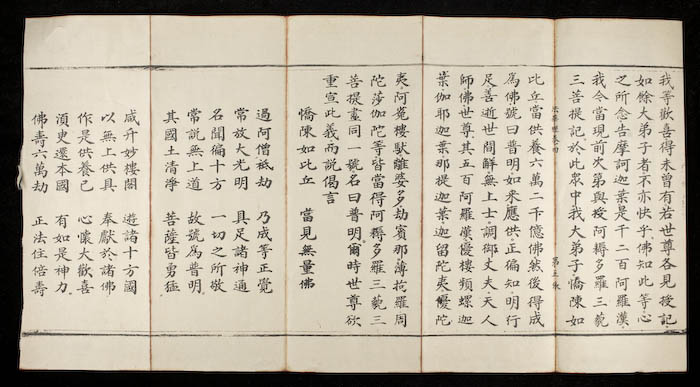 我等歡喜得未曾有若世尊各見授記
如餘大弟子者不亦快乎佛知此等心
之所念告摩訶迦葉是千二百阿羅漢
我今當現前次第與授阿耨多羅三藐
三菩提記於此衆中我大弟子憍陳如
法華經卷四 第五張
比丘當供養六萬二千億佛然後得成
為佛號曰普明如來應供正徧知明行
足善逝世間解無上士調御丈夫天人
師佛世尊其五百阿羅漢優樓頻螺迦
葉伽耶迦葉那提迦葉迦留陀夷優陀
夷阿㝹樓馱離婆多劫賓那薄拘羅周
陀莎伽陀等皆當得阿耨多羅三藐三
菩提盡同一號名曰普明爾時世尊欲
重宣此義而說偈言
憍陳如比丘 當見無量佛
過阿僧祇劫 乃成等正覺
常放大光明 具足諸神通
名聞徧十方 一切之所敬
常說無上道 故號為普明
其國土清淨 菩薩皆勇猛
咸升妙樓閣 遊諸十方國
以無上供具 奉獻於諸佛
作是供養已 心懷大歡喜
須臾還本國 有如是神力
佛壽六萬劫 正法住倍壽